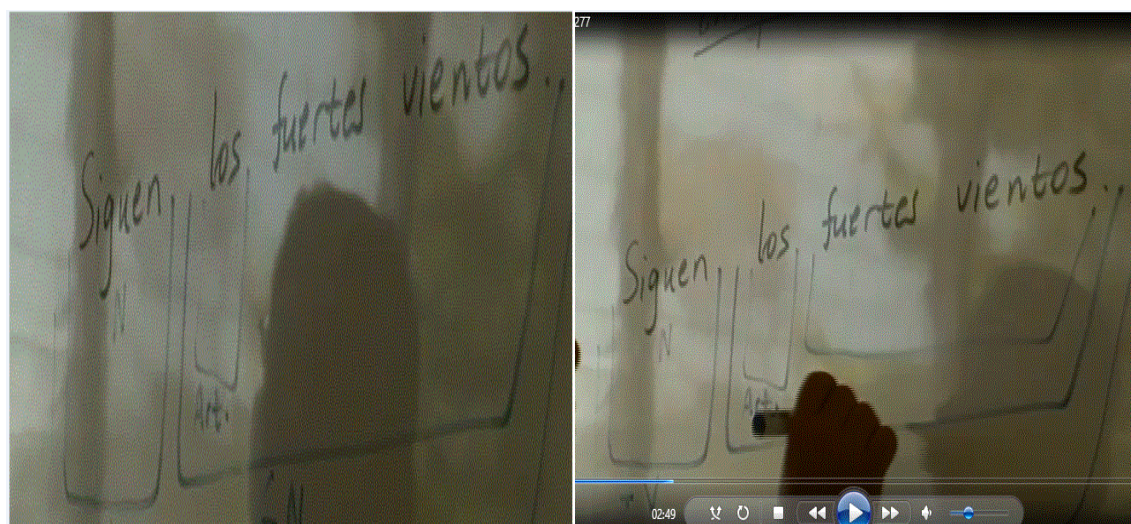 Siguen los fuertes vientos...
N
Art.
N
277
Siguen los fuertes vientos...
N
Art.
02:49